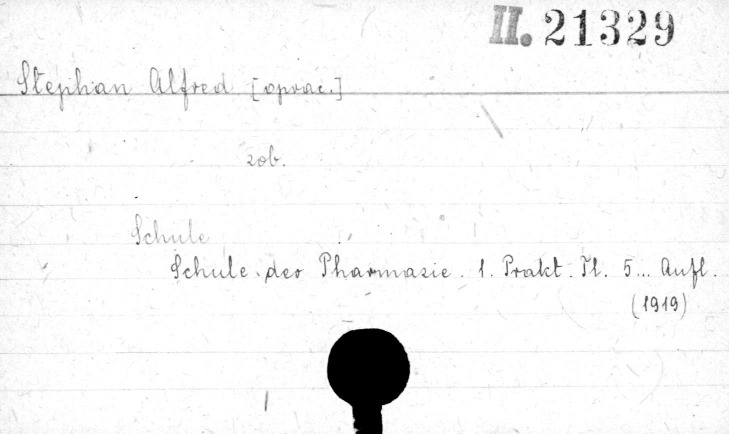 II. 21329
Stephan Alfred [oprac.]
zob.
Schule
Schule der Pharmazie. 1. Prakt. Tl. 5... Aufl.
(1919)